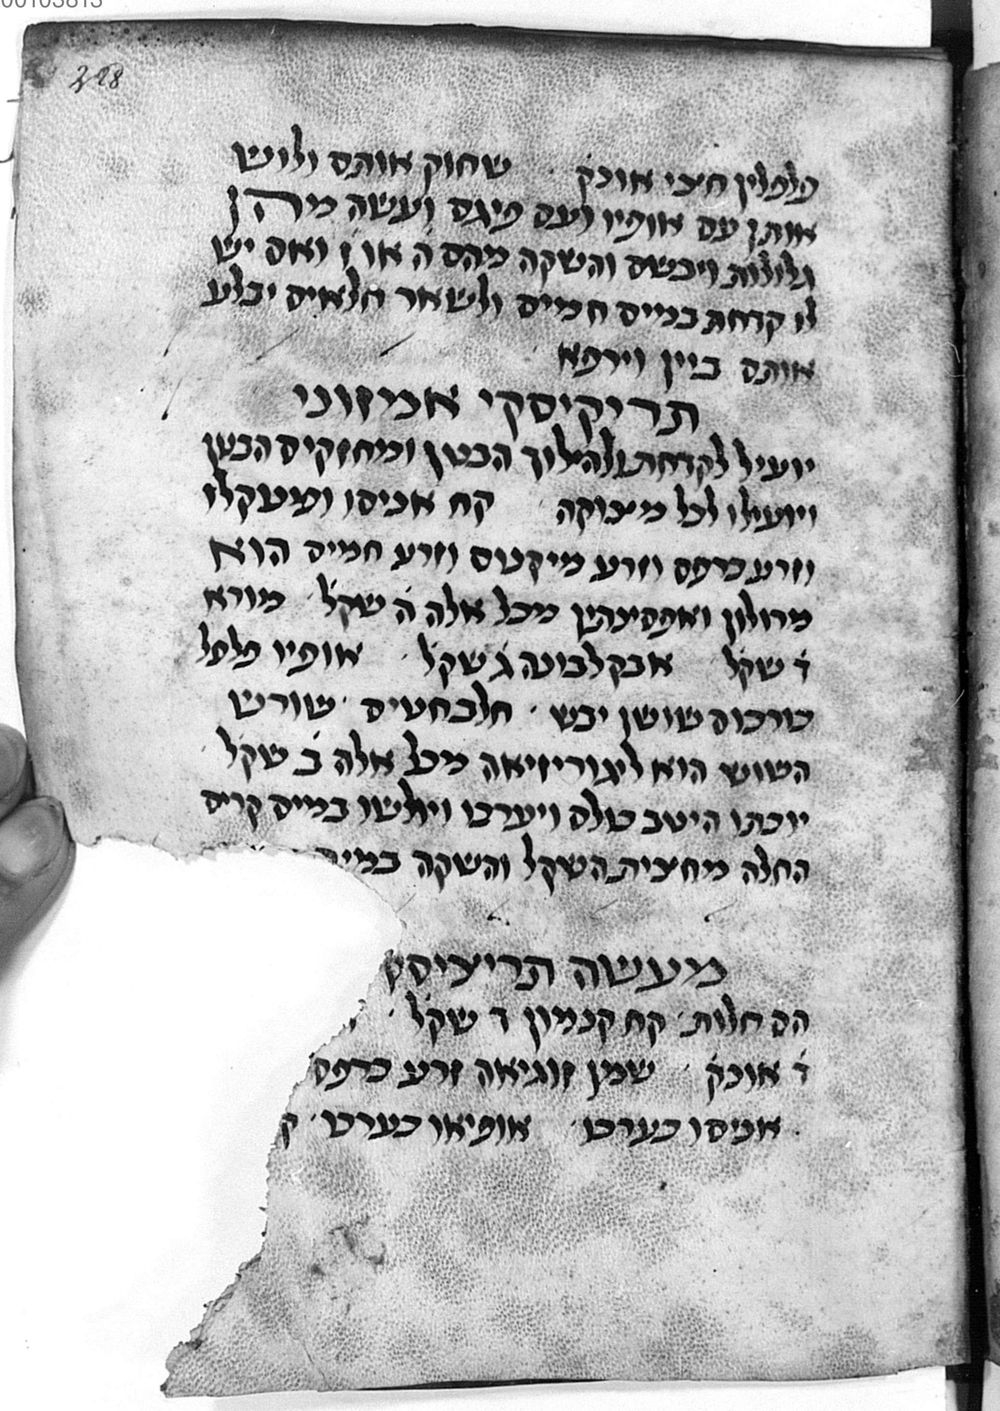 00103813
228
פלפלין חצי אונק׳ שחוק אותם ולוש
אותן עם אופיו ועם פיגם ועשה מהן
גלולות ויבשם והשקה מהם ה׳ או ז׳ ואם יש
לו קדחת במים חמים ולשאר חלאים יבלע
אותם ביין וירפא
תריקיסקי אמיזוני
יועיל לקדחת ולהילוך הבטן ומחזקים הבטן
ויועילו לכל מיצוקה קח אניסו ומטקלו
וזרע כרפס וזרע מיקטס וזרע חמים הוא
מרולון ואפסינתין מכל אלה ה׳ שקל׳ מורא
ד׳ שקל׳ אבקלבונה ג׳ שקל׳ אופיו פלפל
כורכום שושן יבש׳ חלב חטים׳ שורש
השוש הוא ליגוריזיאה מכל אלה ב׳ שקל׳
יוכתו היטב כולם ויערבו ויולשו במים קרים
החלה מחצית השקל והשקה
מעשה תריציסק
הם חלות׳ קח קנמון ד׳ שקל׳
ד׳ אונק׳ שמן זוגיאה זרע כרפס
אניסו כערכו׳ אופיאו כערכו׳